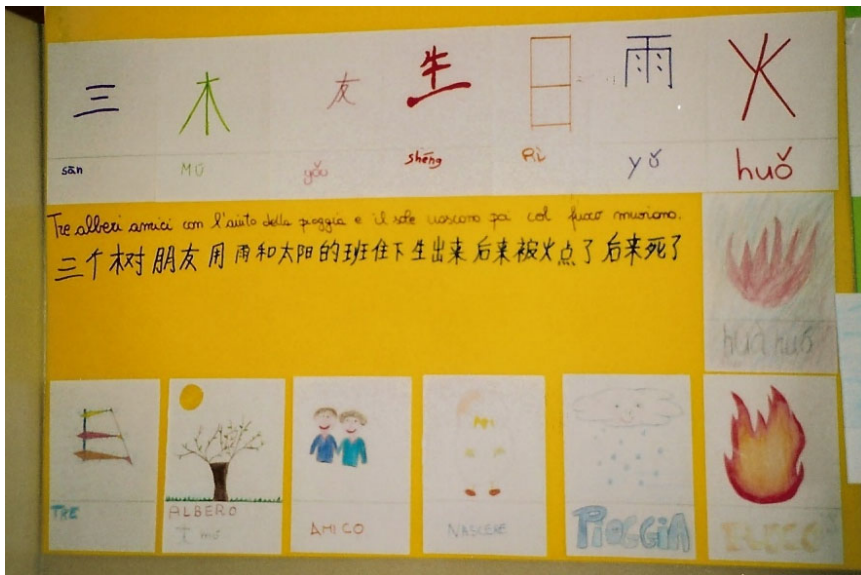 三 木 友 生 日 雨 火
sān MÙ yǒu shēng Rì yǔ huǒ
Tre alberi amici con l'aiuto della pioggia e il sole nascono poi col fuoco muoiono.
三个树朋友用雨和太阳的班住下生出来后来被火点了后来死了
huà huǒ
TRE ALBERO AMICO NASCERE PIOGGIA
木 mù